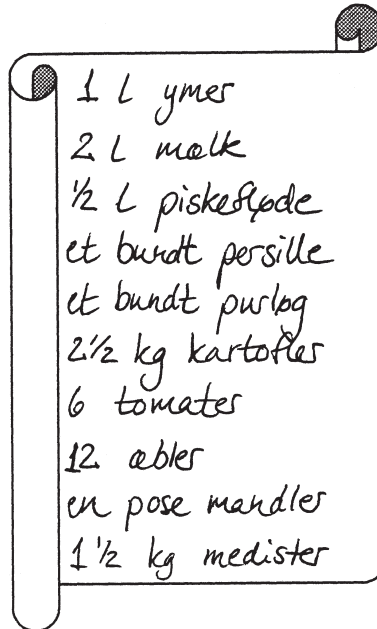 1 l ymer
2 l mælk
½ l piskefløde
et bundt persille
et bundt purløg
2½ kg kartofler
6 tomater
12 æbler
en pose mandler
1½ kg medister